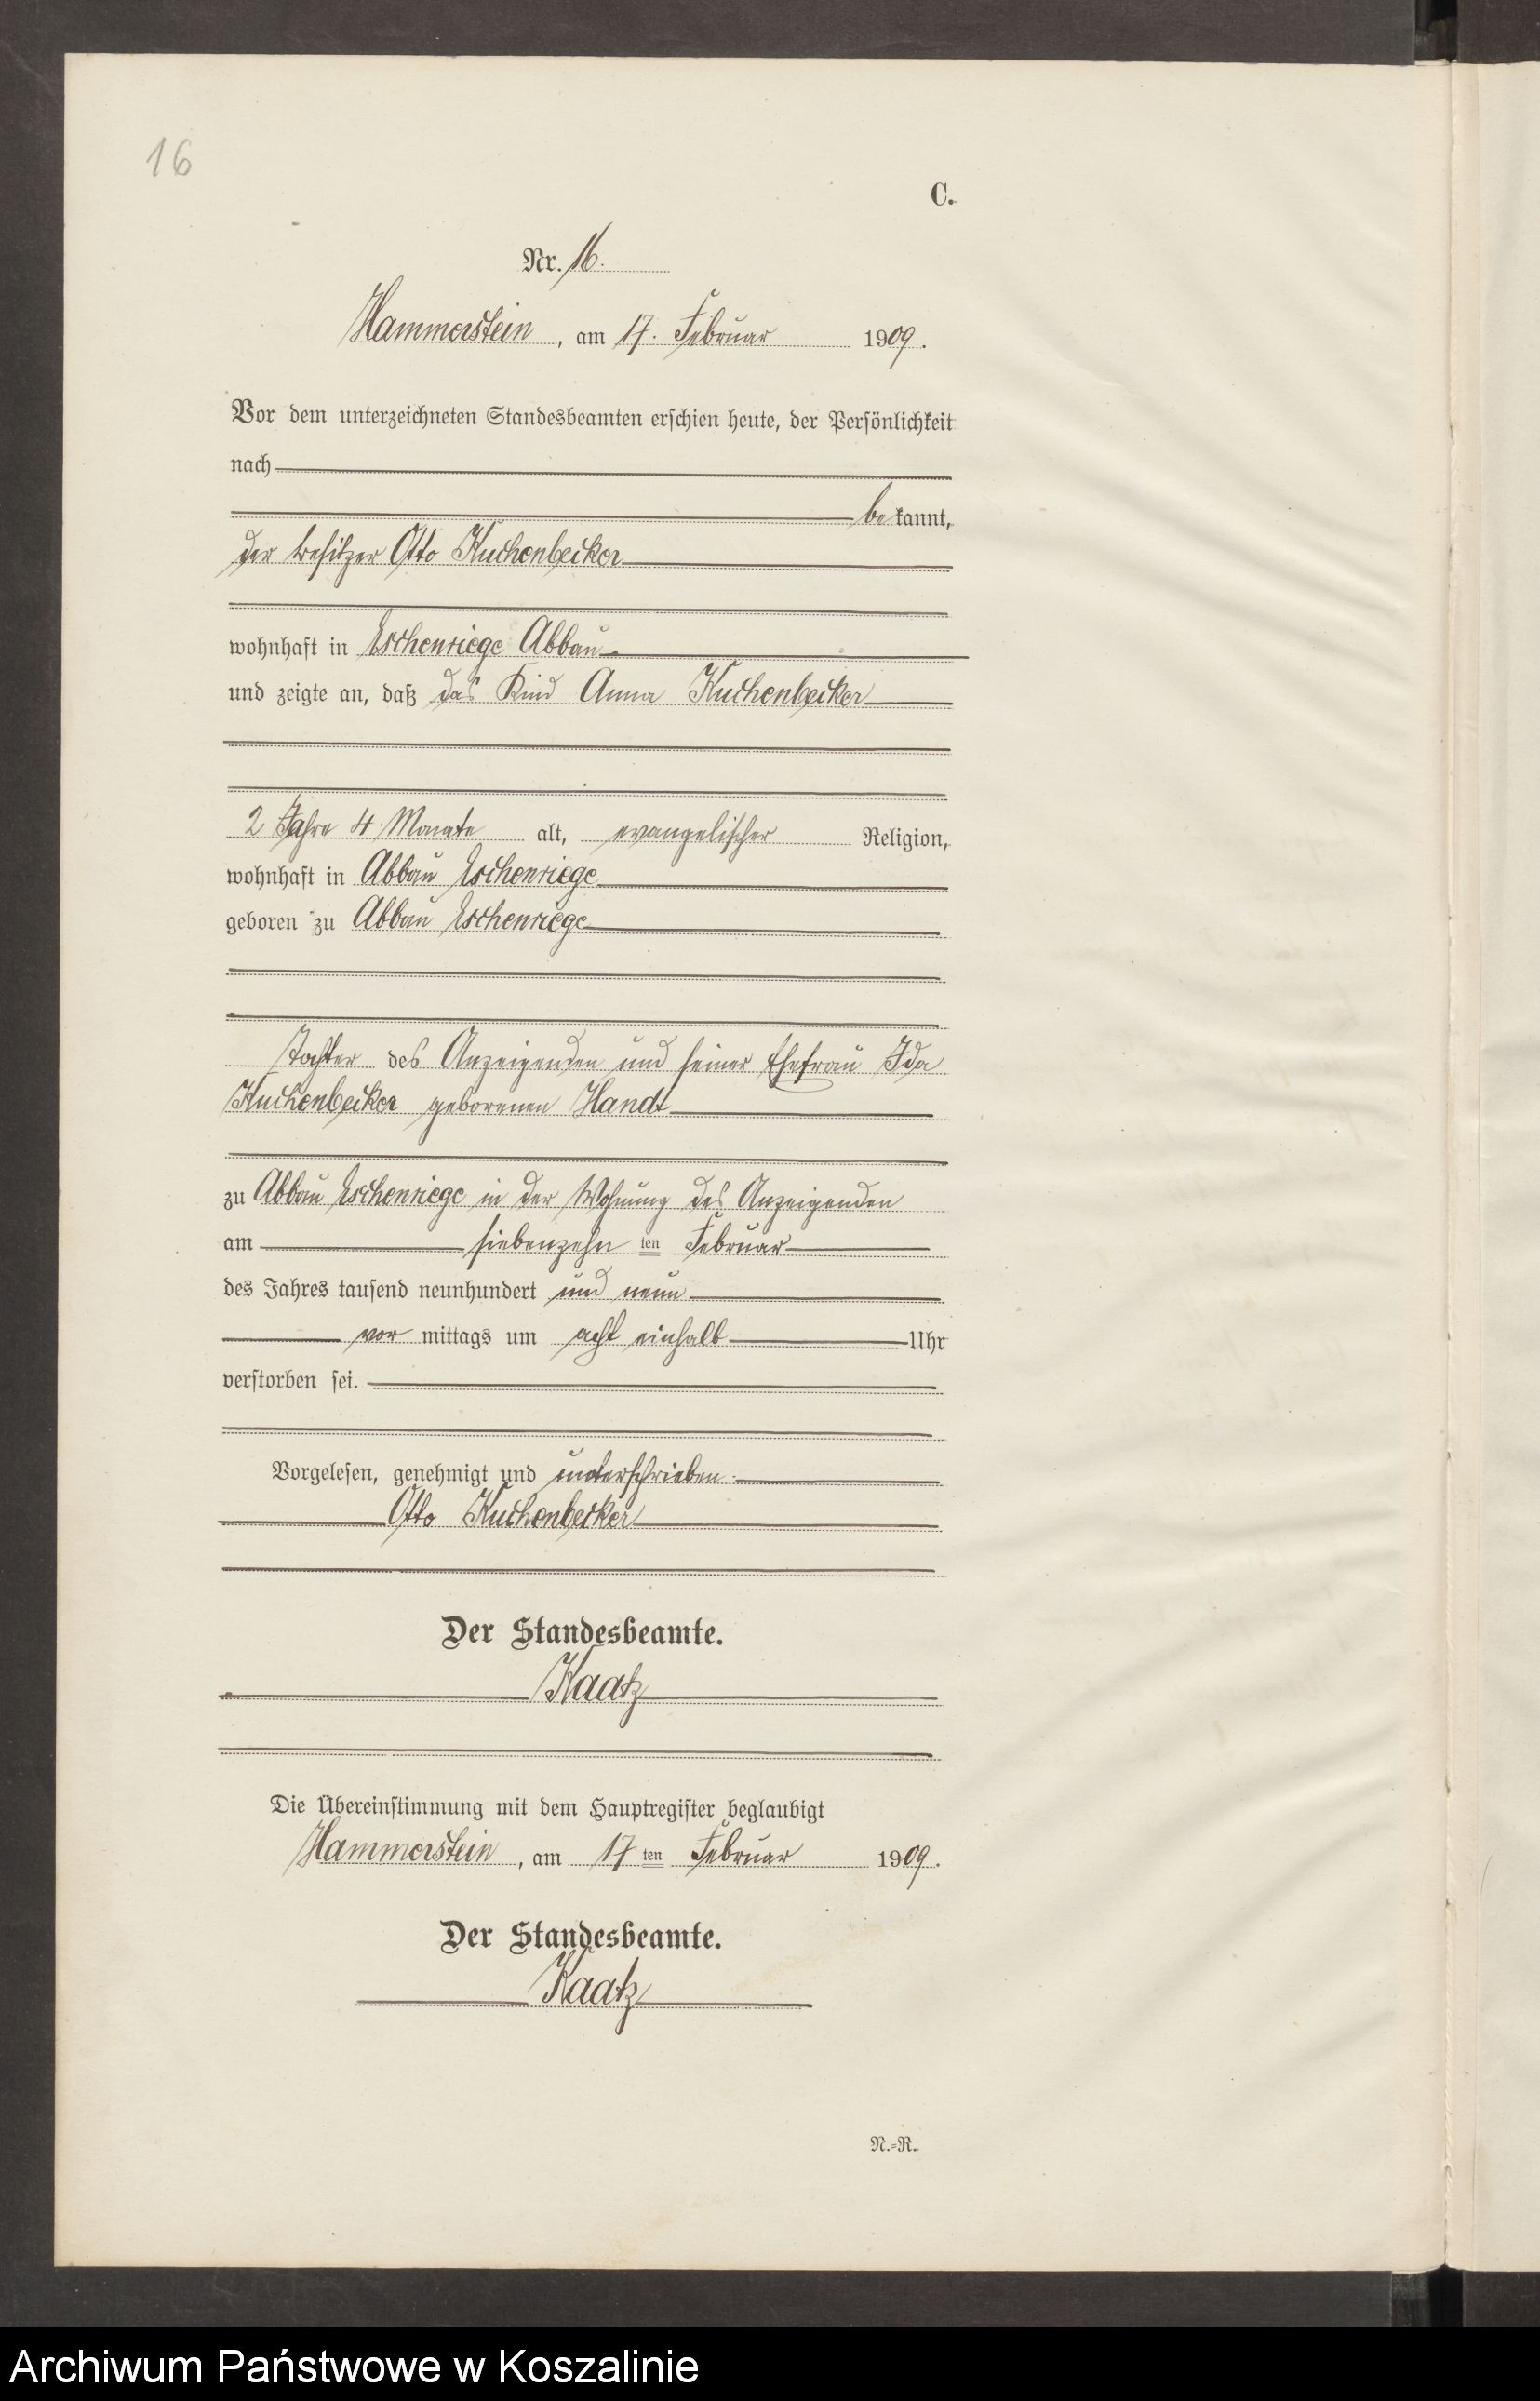 16
C.
Nr. 16.
Hammerstein, am 17. Februar 1909.
Vor dem unterzeichneten Standesbeamten erschien heute, der Persönlichkeit
nach
bekannt,
der Besitzer Otto Kuchenbecker
wohnhaft in Eschenriege Abbau
und zeigte an, daß das Kind Anna Kuchenbecker
2 Jahre 4 Monate alt, evangelischer Religion,
wohnhaft in Abbau Eschenriege
geboren zu Abbau Eschenriege
Tochter des Anzeigenden und seiner Ehefrau Ida
Kuchenbecker geborenen Handt
zu Abbau Eschenriege in der Wohnung des Anzeigenden
am siebenzehn ten Februar
des Jahres tausend neunhundert und neun
vor mittags um acht einhalb Uhr
verstorben sei.
Vorgelesen, genehmigt und unterschrieben.
Otto Kuchenbecker
Der Standesbeamte.
Kaatz
Die Übereinstimmung mit dem Hauptregister beglaubigt
Hammerstein, am 17 ten Februar 1909.
Der Standesbeamte.
Kaatz
N.=R.
Archiwum Państwowe w Koszalinie